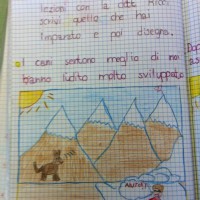 lezioni con la dott. Ricc
scrivi quello che hai
imparato e poi disegna.
I cani sentono meglio di noi
hanno l'udito molto sviluppato
AIUTO!